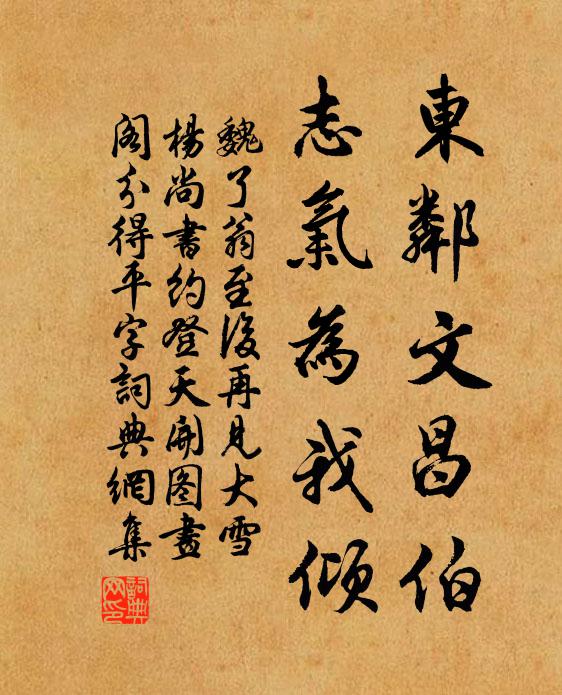 東鄰文昌伯
志氣為我傾
魏了翁至後再見大雪
楊尚書約登天開图畫
阁分得平字詞典網集
詞典网印